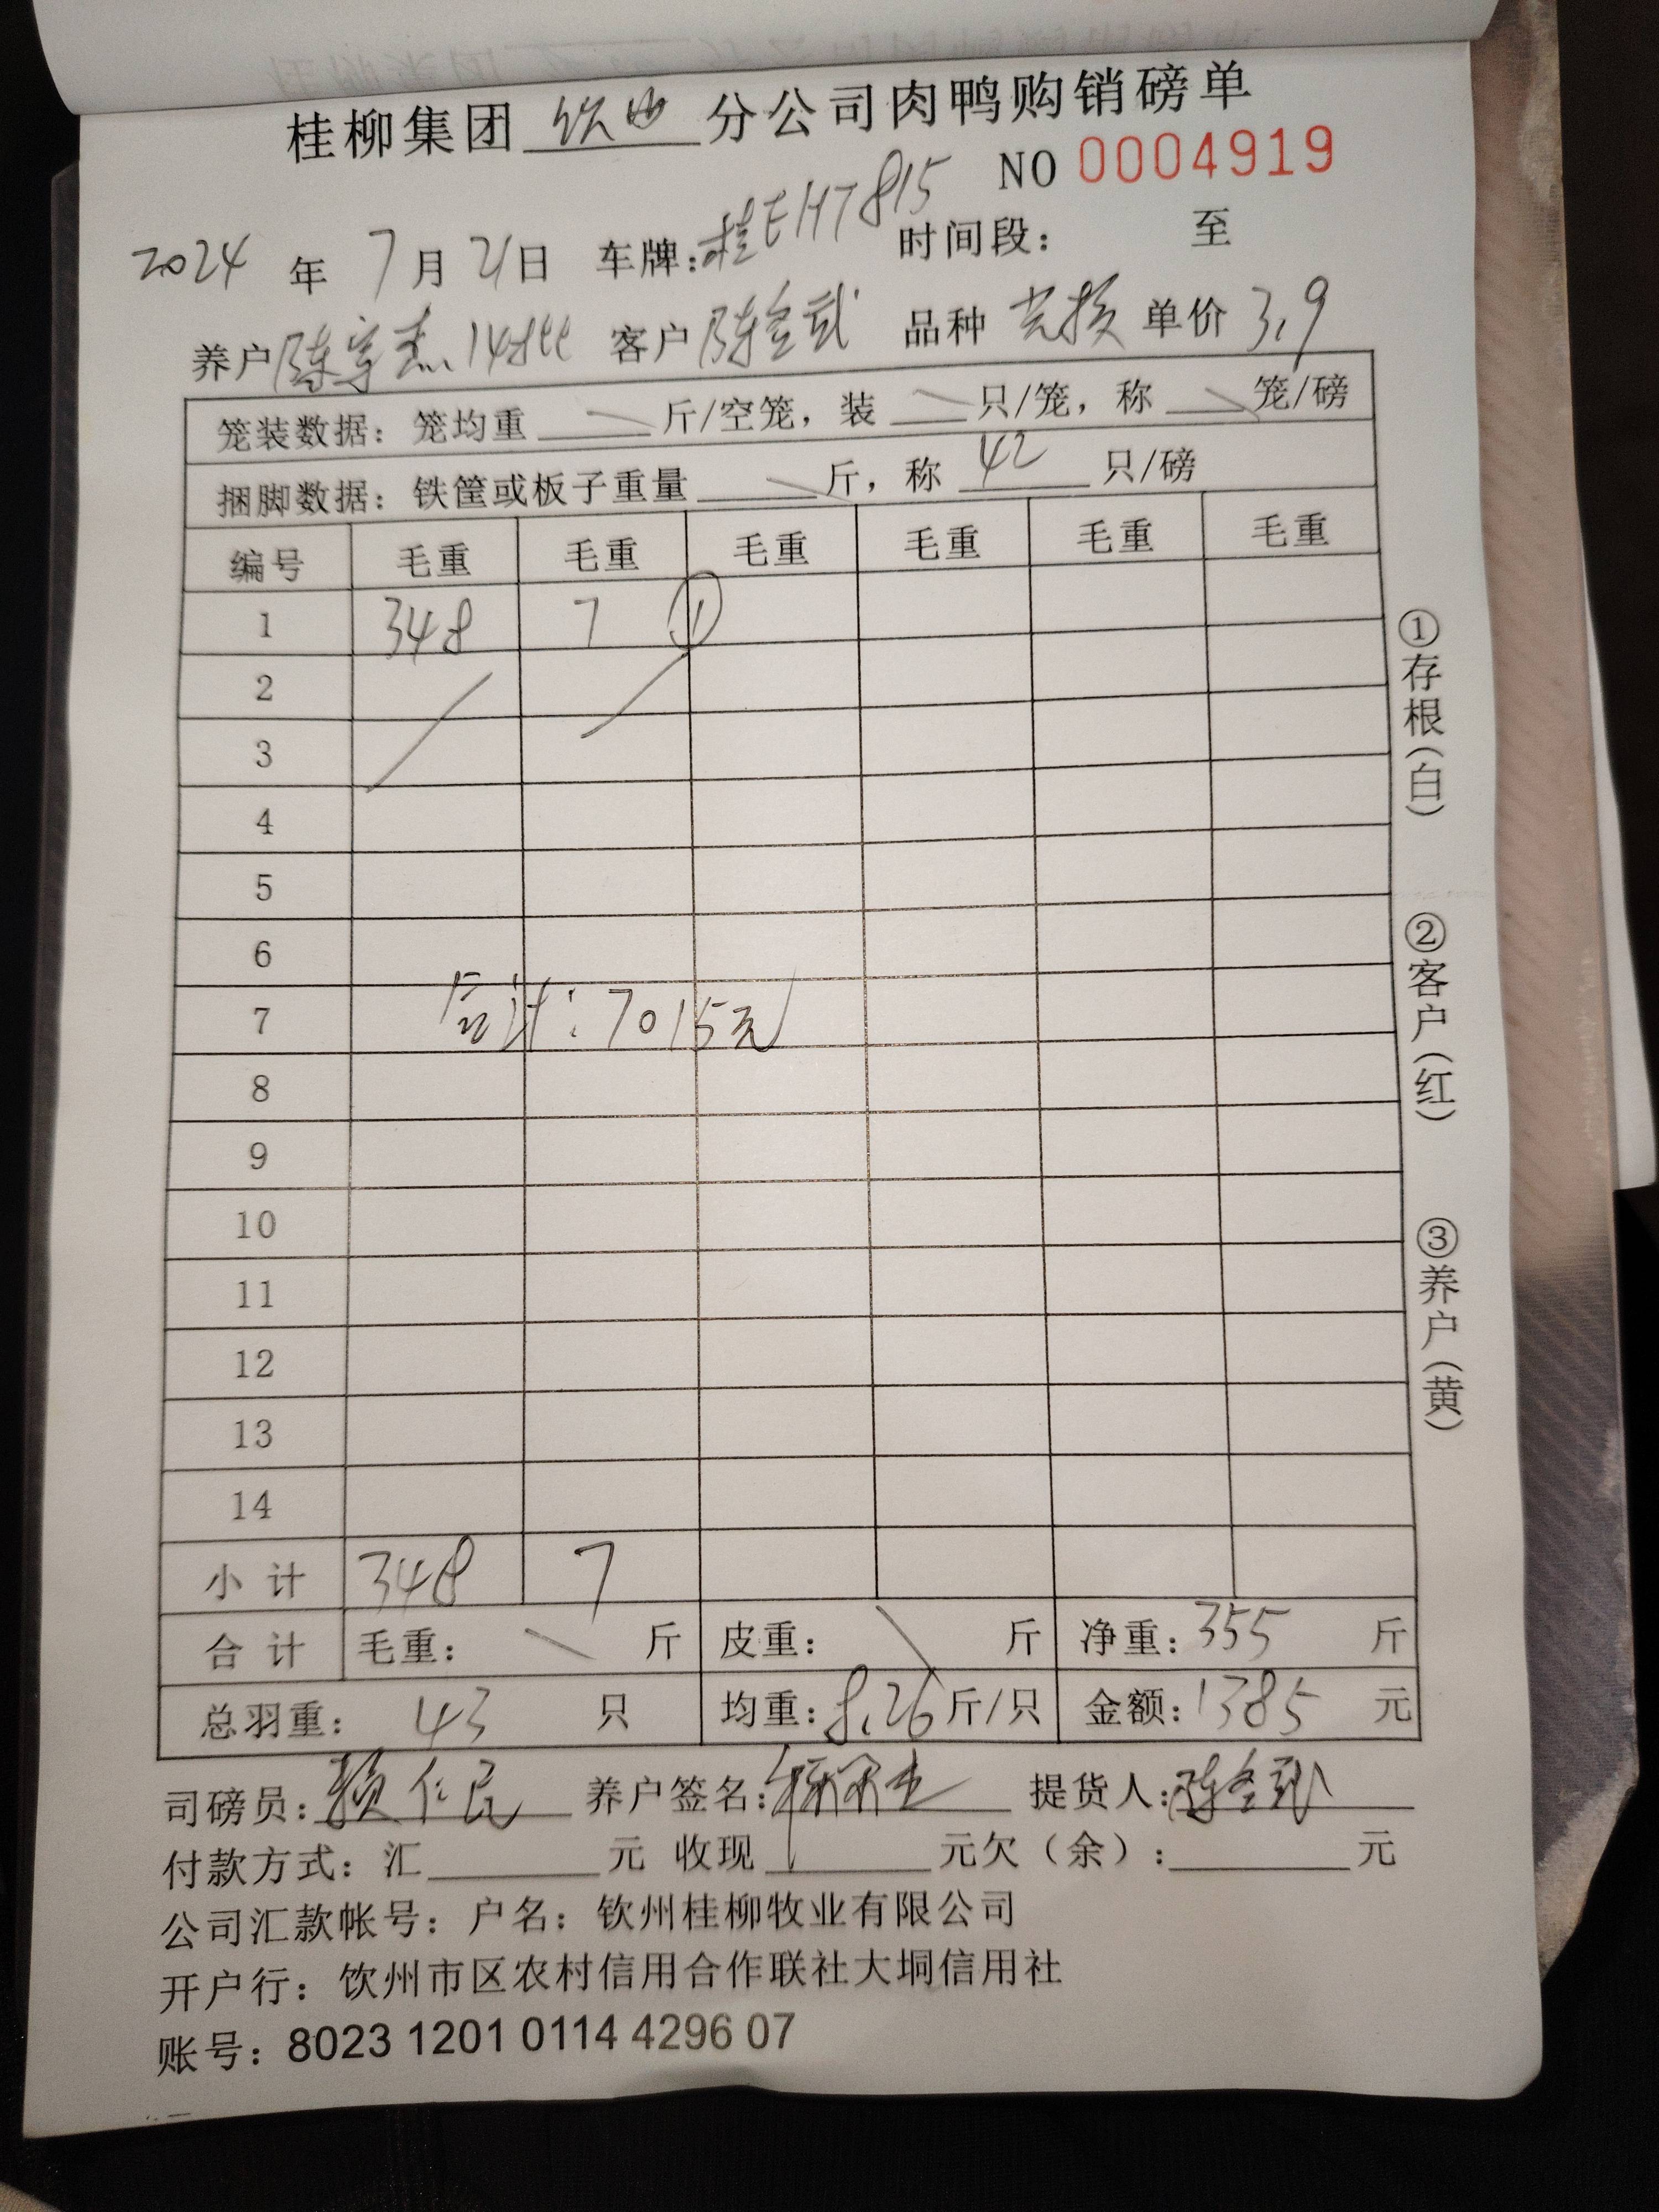 桂柳集团 钦州 分公司肉鸭购销磅单
NO 0004919
2024 年 7 月 21 日 车牌：桂EH7815 时间段： 至
养户 陈宇杰 14批 客户 陈金武 品种 单价 3.9
笼装数据：笼均重 斤/空笼，装 只/笼，称 笼/磅
捆脚数据：铁筐或板子重量 斤，称 42 只/磅
编号 毛重 毛重 毛重 毛重 毛重 毛重
1 348 7 ①
2
3
4
5
6
7 合计：7015元
8
9
10
11
12
13
14
小计 348 7
合计 毛重： 斤 皮重： 斤 净重：355 斤
总羽重： 43 只 均重：8.26 斤/只 金额：1385 元
司磅员：赖仁民 养户签名： 提货人：陈金武
付款方式：汇 元 收现 元欠（余）： 元
公司汇款帐号：户名：钦州桂柳牧业有限公司
开户行：钦州市区农村信用合作联社大垌信用社
账号：8023 1201 0114 4296 07
①存根（白）
②客户（红）
③养户（黄）